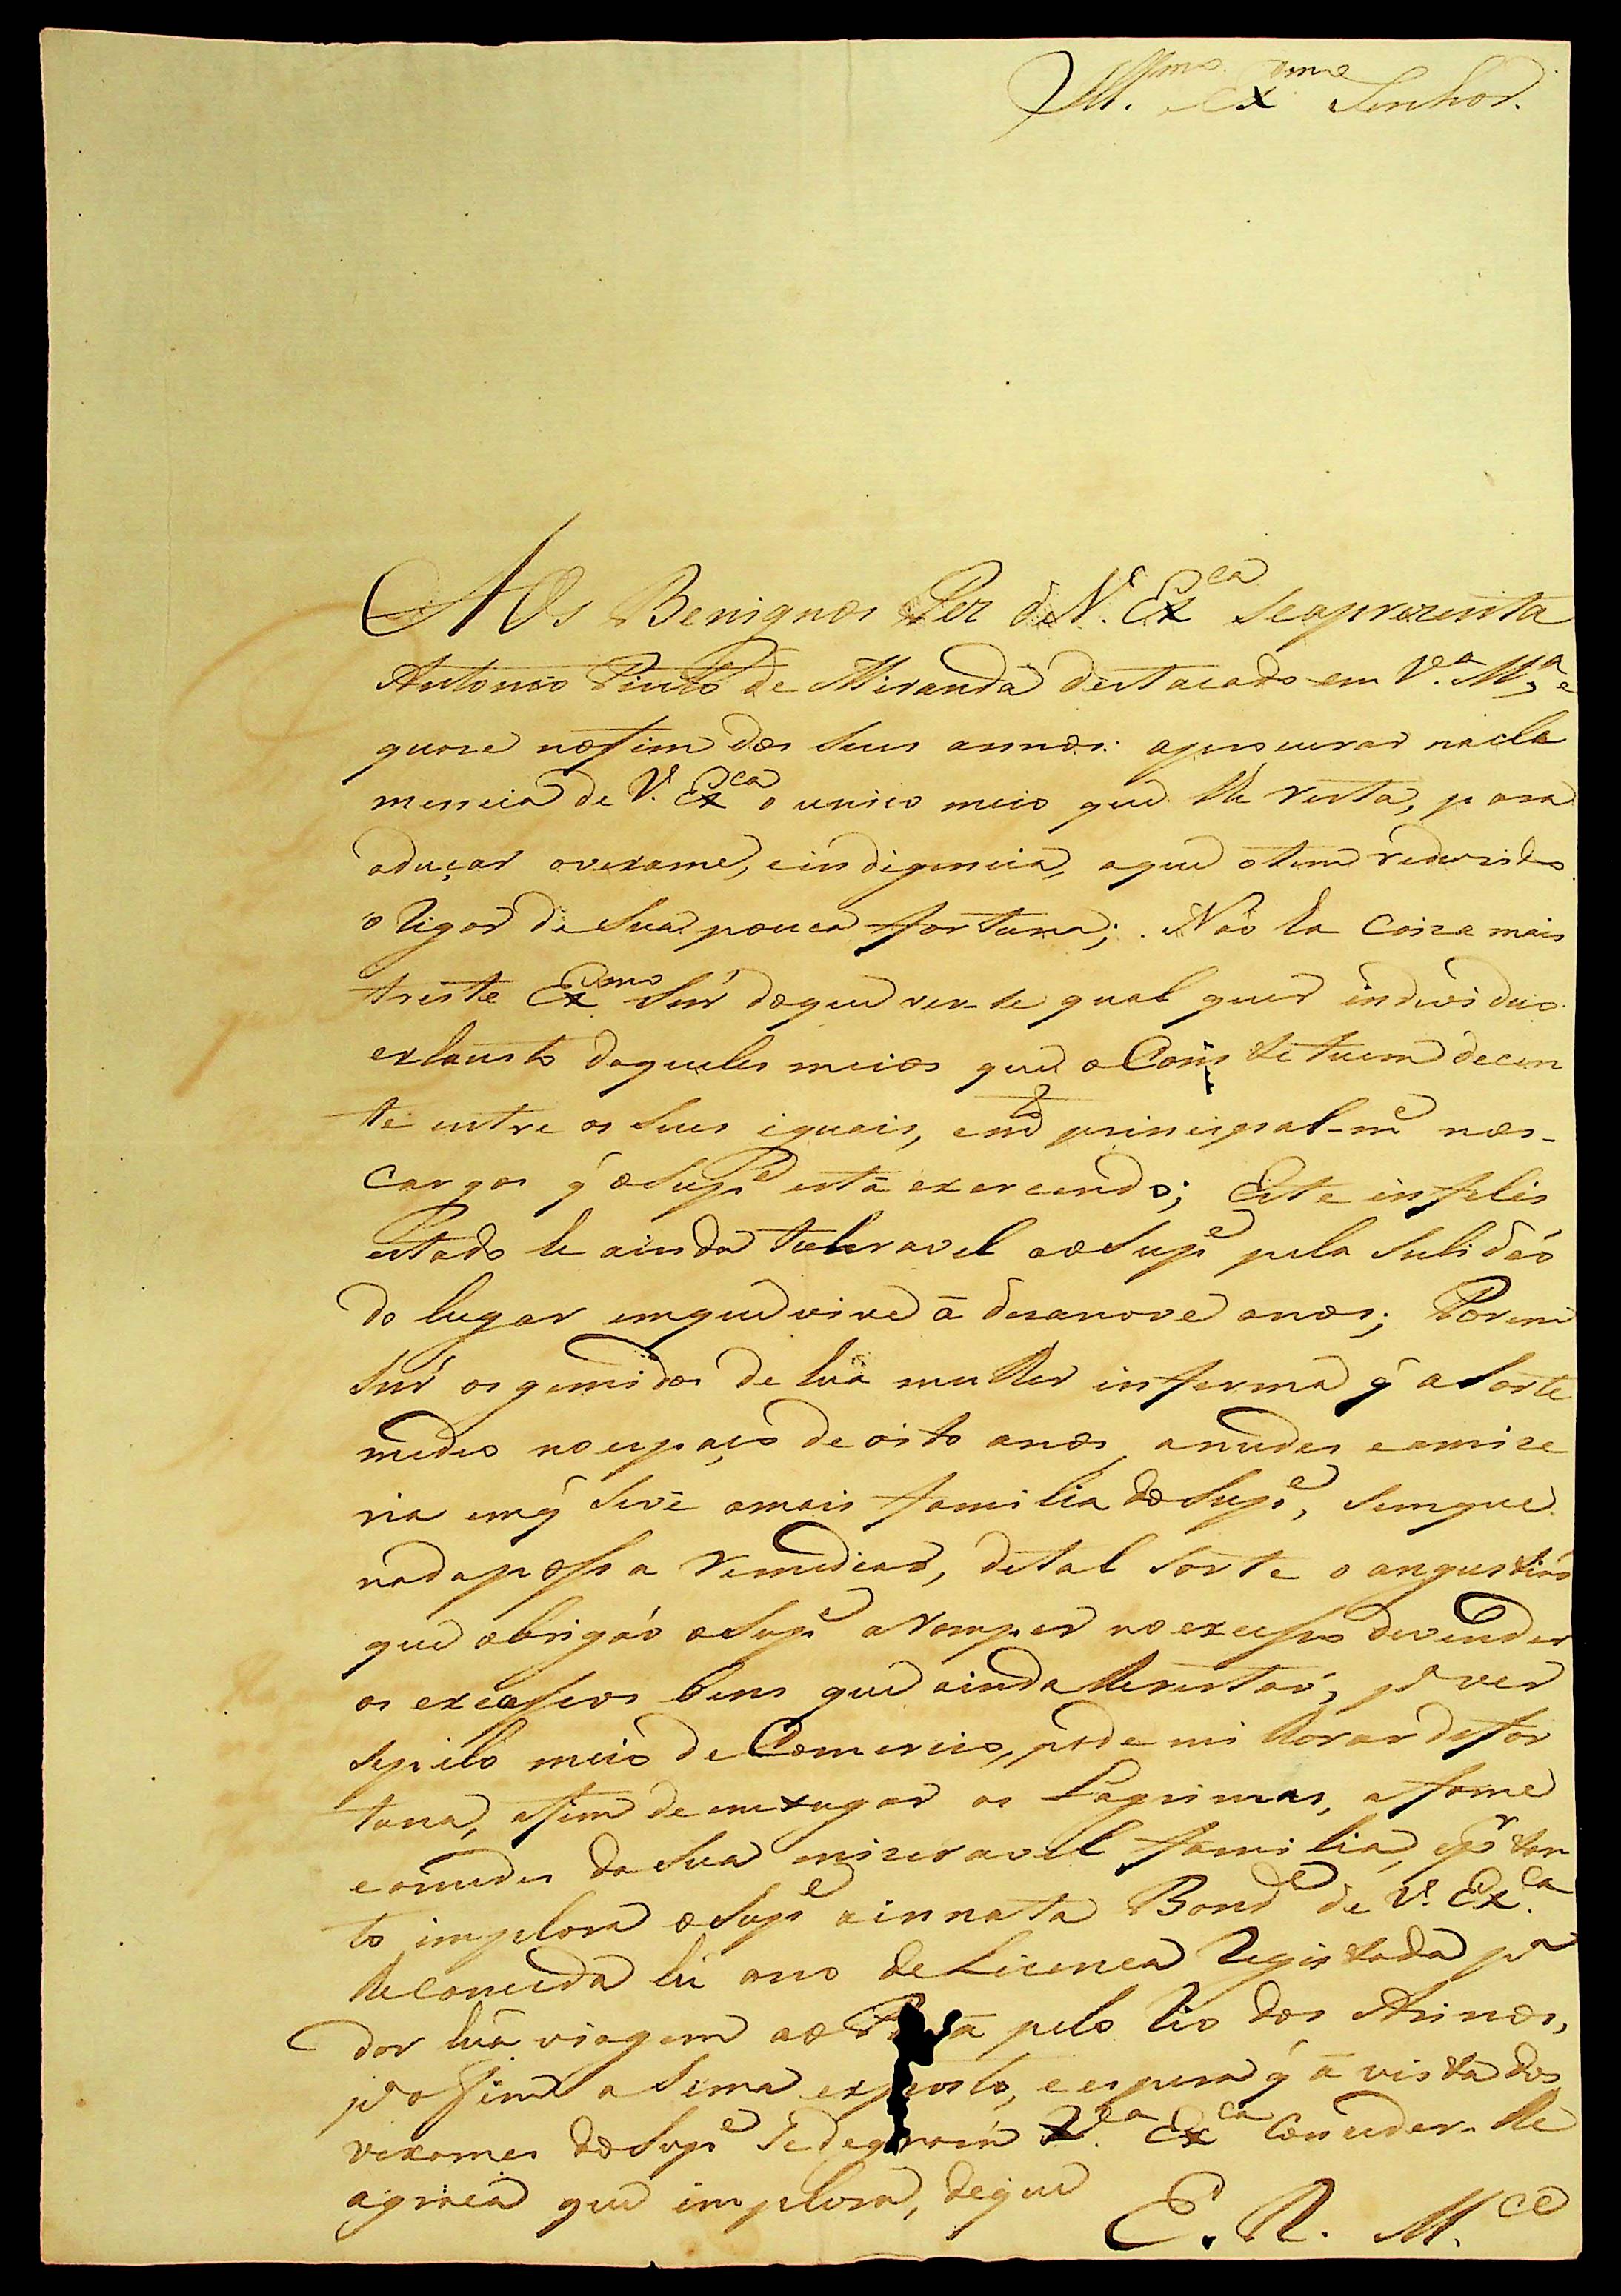 Ill.mo Ex.mo Senhor.
AOs Benignos Pez de V. Ex.ca se aprezenta
Antonio Pinto de Miranda destacado em V.a M.a e
quaze no fim dos seus annos: aprocurar nacle
mencia de V. Ex.ca o unico meio que lhe resta, para
aduçar overame, eindigencia, aque otem reduzido
o Rigor de Sua pouca fortuna; Não ha Coiza mais
triste Ex.mo Snr' doque ver-se qual quer individuo
exhausto daqueles meios que o Constetuem decen
te entre os Seus iguais, principal-m.e nos
Cargos q' o Sup.e está exercendo; Este infelis
estado he ainda toleravel ao Sup.e pela Sulidaõ
do lugar emque vive á dezanove anos; Porem
Snr' os gemidos de huã mulher inferma q' a Sorte
medeo no espaço de oito anos, anudes, eamize
ria emq' Sevê amais familia do Sup.e, Semque
nada possa remediar, detal Sorte o angustiaõ
que obrigaõ o Sup.e a Romper no excesso devender
os excassos bens que ainda lhe restaõ, p.a ver
Sepelo meio de Comercio, pode milhorar defor
tuna, afim de emxugar as Lagrimas, a fome
eanudes da Sua mizeravel familia, e p.r tan
to implora o Sup.e ainnata Bond.e de V. Ex.ca
lhe Conceda hũ ano de Licenca Registada p.a
dar huã viagem ao pelo Rio dos Arinos,
p.a ofim a Sima exposto, eespera q' á vista dos
vexames do Sup.e Sedegnará V.a Ex.ca Conceder-lhe
agraca que implora, deque
E. R. M.ce